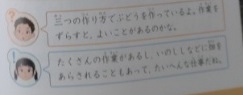 三つの作り方でぶどうを作っているよ。作業を
ずらすと、よいことがあるのかな。
たくさんの作業があるし、いのししなどに畑を
あらされることもあって、たいへんな仕事だね。